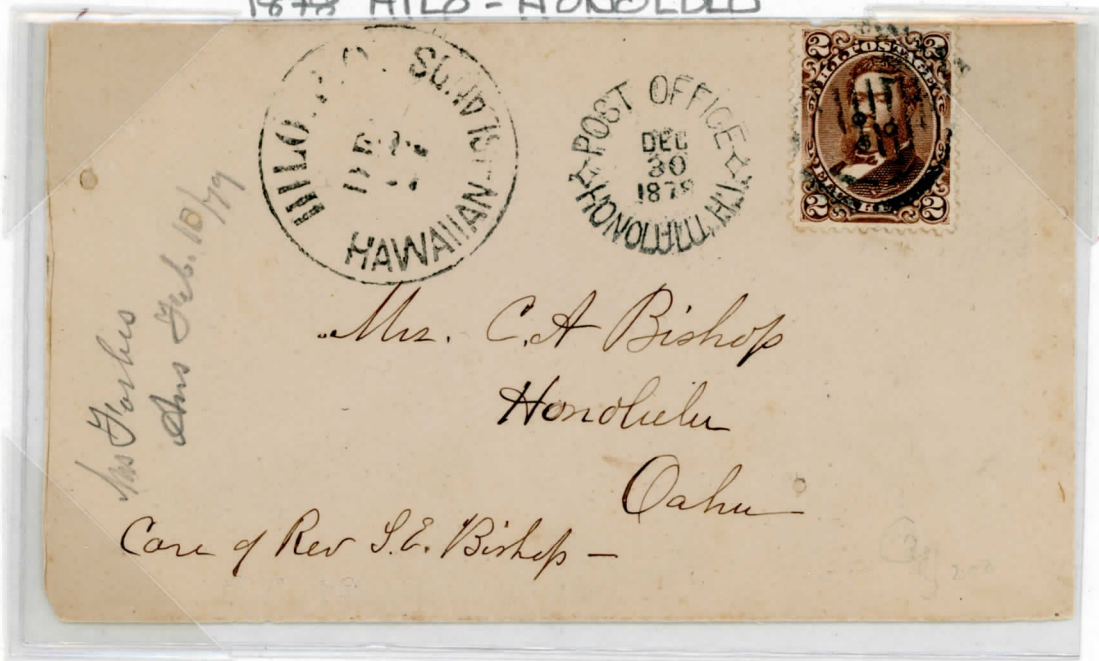 1878 HILO - HONOLULU
HILO
HAWAIIAN ISLANDS
DEC
POST OFFICE
DEC
30
1878
HONOLULU, H.I.
2 2
2 2
Mrs Forbes
Ans Feb. 10/79
Mrs. C. A Bishop
Honolulu
Oahu
Care of Rev S. E. Bishop —